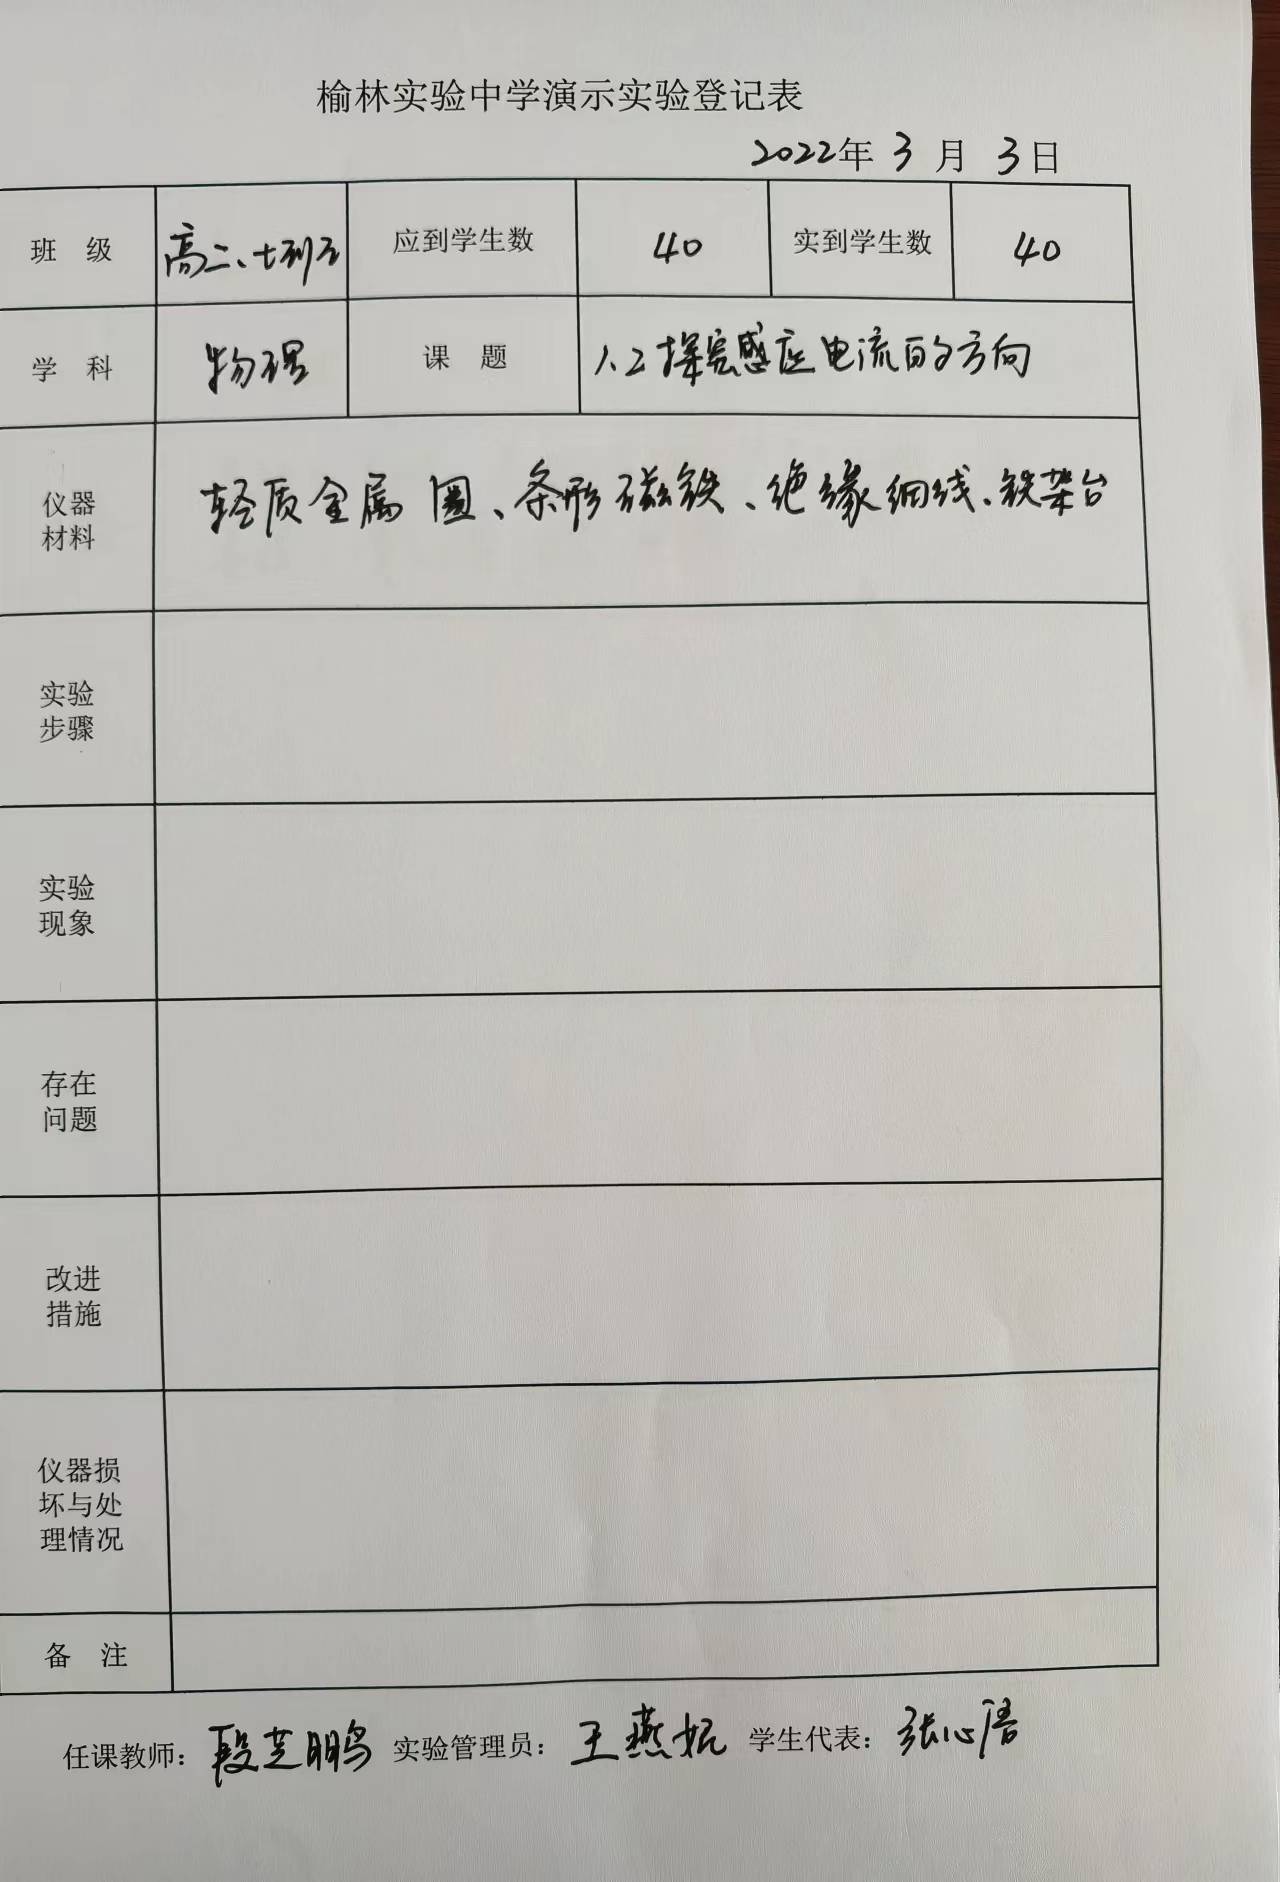 榆林实验中学演示实验登记表
2022年 3 月 3日
班 级 高二、七 应到学生数 40 实到学生数 40
学 科 物理 课 题 1.2探究感应电流的方向
仪器 轻质金属圈、条形磁铁、绝缘细线、铁架台
材料
实验
步骤
实验
现象
存在
问题
改进
措施
仪器损
坏与处
理情况
备 注
任课教师: 段芝鹏 实验管理员: 王燕妮 学生代表: 张心语